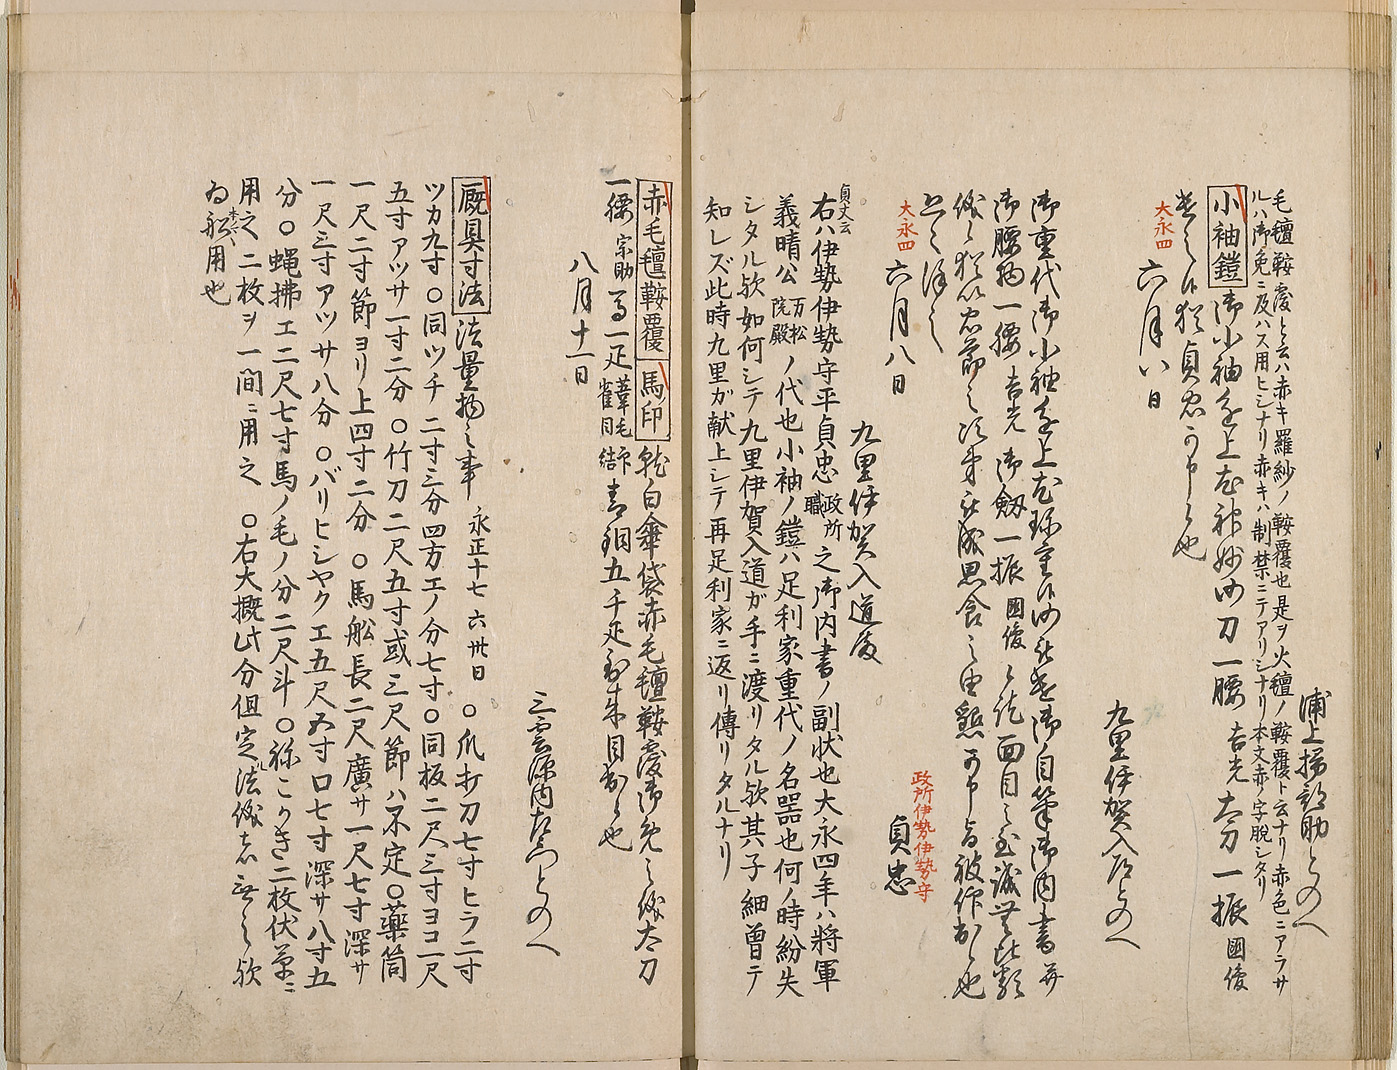 浦上掃部助とのへ
毛氈鞍覆と云ハ赤キ羅紗ノ鞍覆也是ヲ火氈ノ鞍覆ト云ナリ赤色ニアラサ
ルハ御免ニ及ハス用ヒシナリ赤キハ制禁ニテアリシナリ本文赤ノ字脱シタリ
小袖鎧 御小袖進上尤神妙仍刀一腰吉光太刀一振国俊
遣之候猶貞忠可申候也
大永四 六月八日
九里伊賀入道とのへ
御重代御小袖進上尤珎重候仍被遣御自筆御内書并
御腰物一腰吉光御劔一振国俊
思食之由懇可申旨被仰出候也
大永四 六月八日
政所伊勢伊勢守 貞忠
九里伊賀入道殿
貞丈云 右ハ伊勢伊勢守平貞忠政所職之御内書ノ副状也大永四年ハ将軍
義晴公万松院殿ノ代也小袖ノ鎧ハ足利家重代ノ名器也何ノ時紛失
シタル欤如何シテ九里伊賀入道ガ手ニ渡リタル欤其子細曽テ
知レズ此時九里ガ献上シテ再足利家ニ返リ傳リタルナリ
赤毛氈鞍覆 馬印 就白傘袋赤毛氈鞍覆御免之儀太刀
一腰宗助馬一疋葦毛印雀目結青銅五千疋到来目出候也
八月十一日
三雲源内左衛門とのへ
厩具寸法 法量物之事 永正十七 六 卅日 〇爪打刀七寸ヒラ二寸
ツカ九寸〇同ツチ二寸三分四方エノ分七寸〇同板二尺三寸ヨコ一尺
五寸アツサ一寸二分〇竹刀二尺五寸或三尺節ハ不定〇薬筒
一尺二寸節ヨリ上四寸二分〇馬舩長二尺廣サ一尺七寸深サ
一尺三寸アツサ八分〇バリヒシヤクエ五尺五寸口七寸深サ八寸五
分〇蝿拂エ二尺七寸馬ノ毛ノ分二尺斗〇ねこかき二枚伏草ニ
用之二枚ヲ一間ニ用之 〇右大概此分但定法儀者無之欤
為舩用也